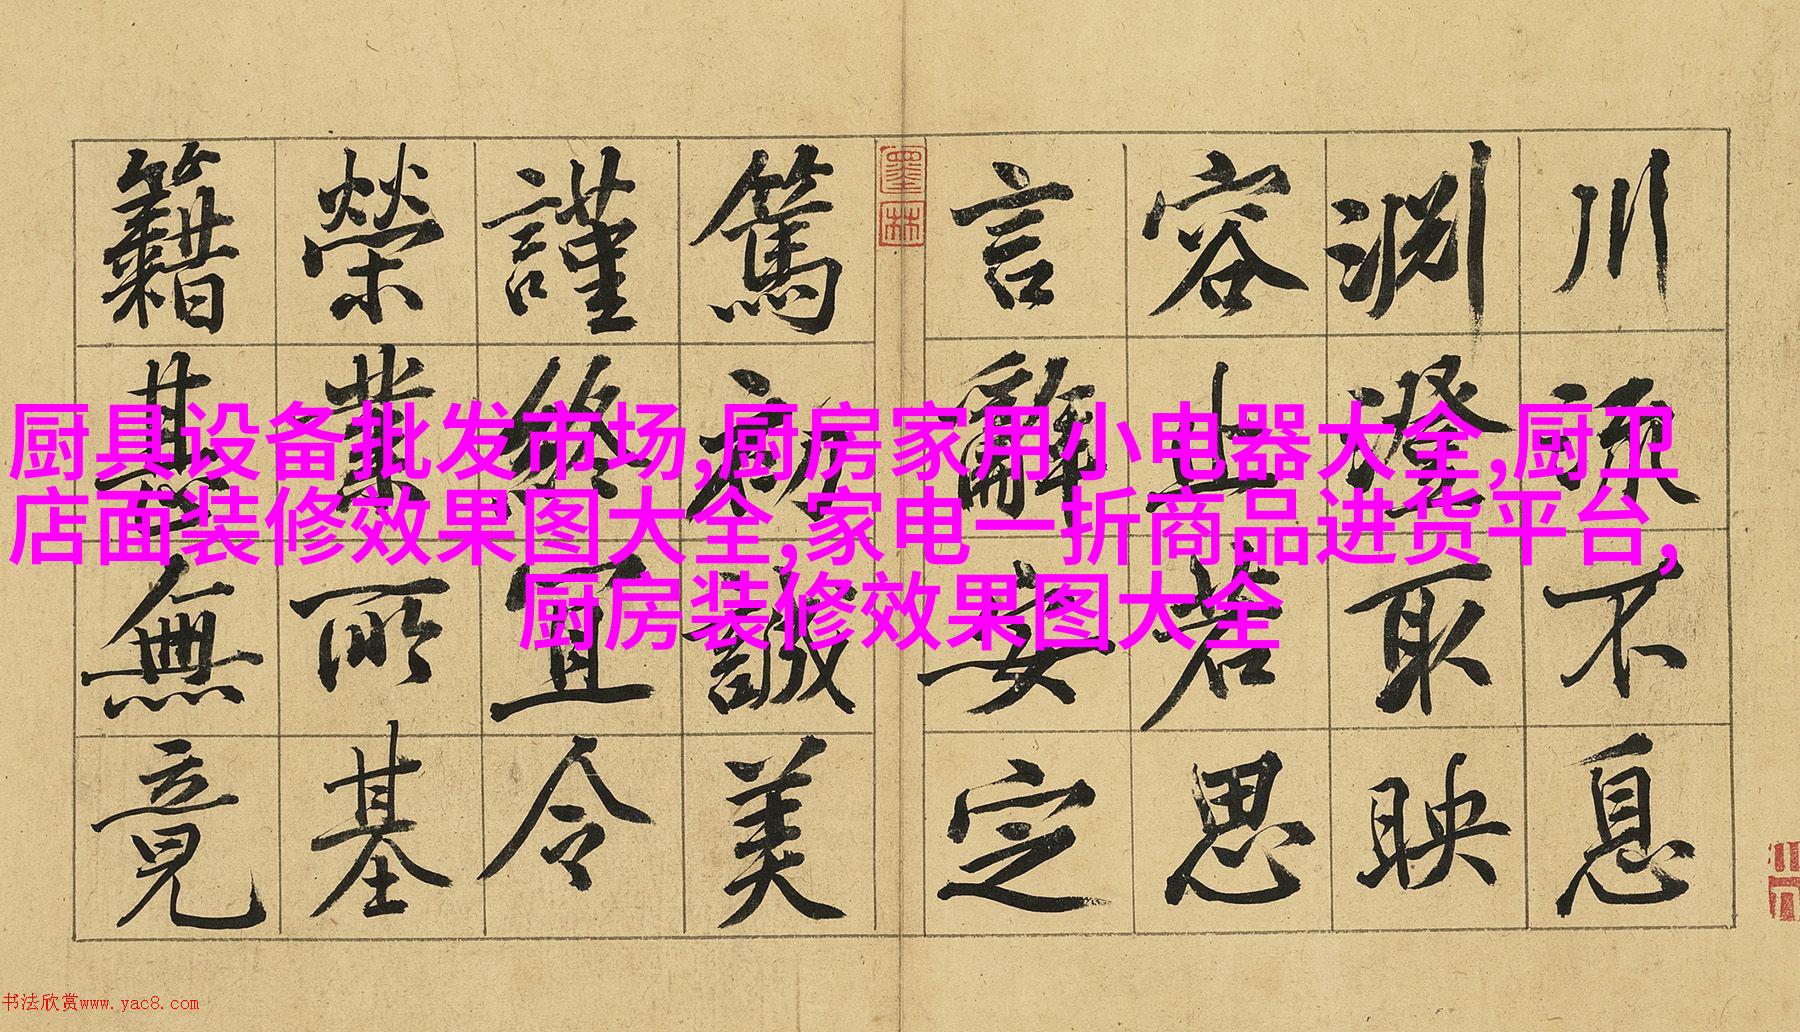 川流不息
淵澄取映
容止若思
言辭安定
墨林
篤初誠美
謹終宜令
榮業所基
籍甚無竟
厨具设备批发市场,厨房家用小电器大全,厨卫
店面装修效果图大全,家电一折商品进货平台,
厨房装修效果图大全
书法欣赏www.yac8.com